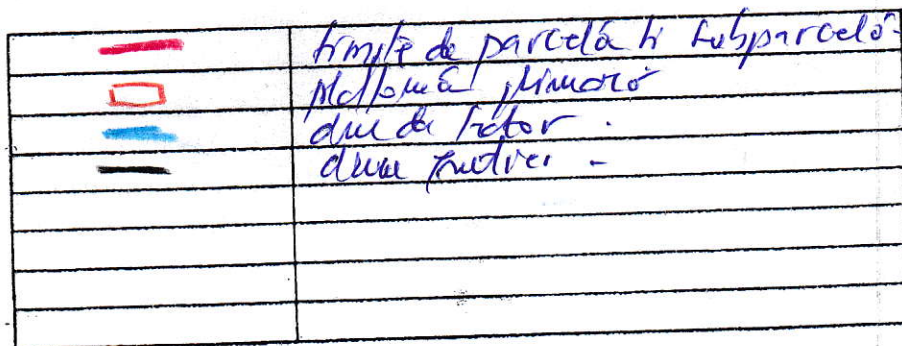 limite de parcelă și subparcelă.
platformă primară
drum de tractor.
drum